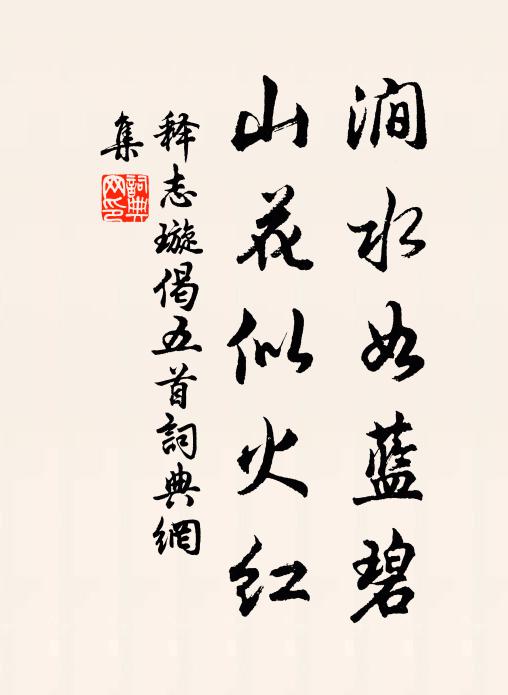 涧水如蓝碧
山花似火红
释志璇偈五首詞典網
集
詞典網印